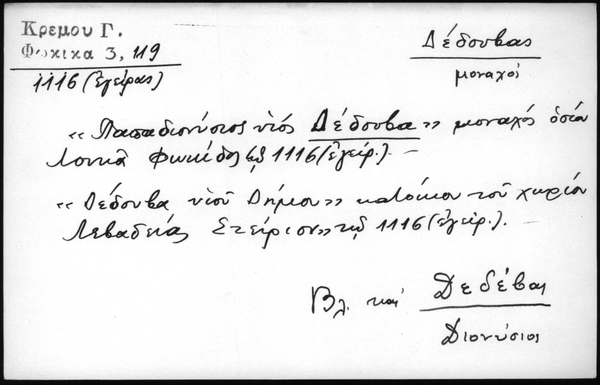 Κρεμου Γ.
Φωκικα 3, 119
1116 (ἐγείρας)
Δέδουβας
μοναχοί
«Παπαδιονύσιος υἱός Δέδουβα» μοναχός ὁσίου
Λουκᾶ Φωκίδος τῷ 1116 (ἐγείρ.). —
«Δέδουβα υἱοῦ Δήμου» κατοίκου τοῦ χωρίου
Λεβαδείας Στείριου» τῷ 1116 (ἐγείρ.). —
Βλ. καί Δεδέβας
Διονύσιος